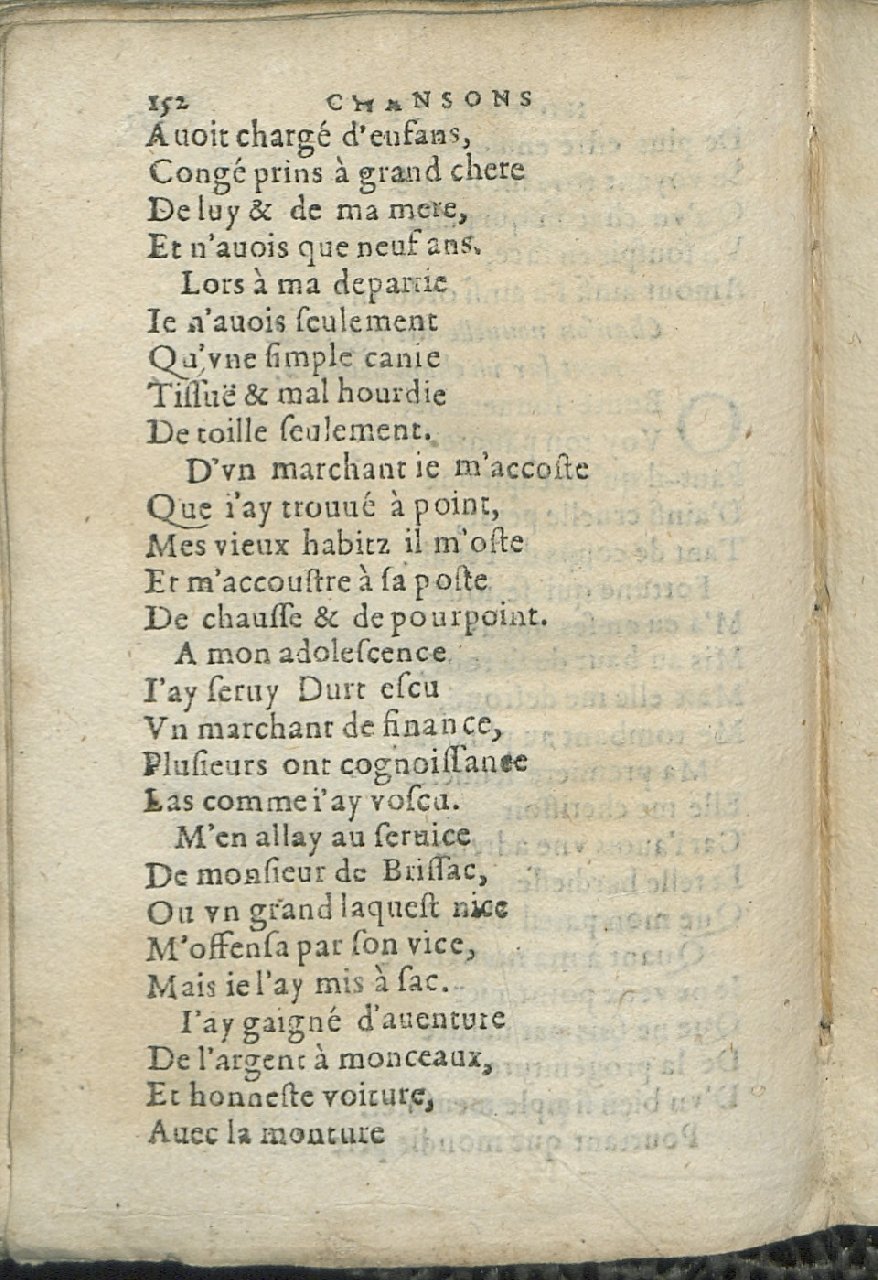 152 CHANSONS
Auoit chargé d'enfans,
Congé prins à grand chere
De luy & de ma mere,
Et n'auois que neuf ans.
Lors à ma departie
Ie n'auois ſeulement
Qu'vne ſimple canie
Tiſſuë & mal hourdie
De toille ſeulement.
D'vn marchant ie m'accoſte
Que i'ay trouué à point,
Mes vieux habitz il m'oſte
Et m'accouſtre à ſa poſte
De chauſſe & de pourpoint.
A mon adoleſcence
I'ay ſeruy Durt eſcu
Vn marchant de finance,
Pluſieurs ont cognoiſſance
Las comme i'ay veſcu.
M'en allay au ſeruice
De monſieur de Briſſac,
Ou vn grand laqueſt nice
M'offenſa par ſon vice,
Mais ie l'ay mis à ſac.
I'ay gaigné d'auenture
De l'argent à monceaux,
Et honneſte voiture,
Auec la monture